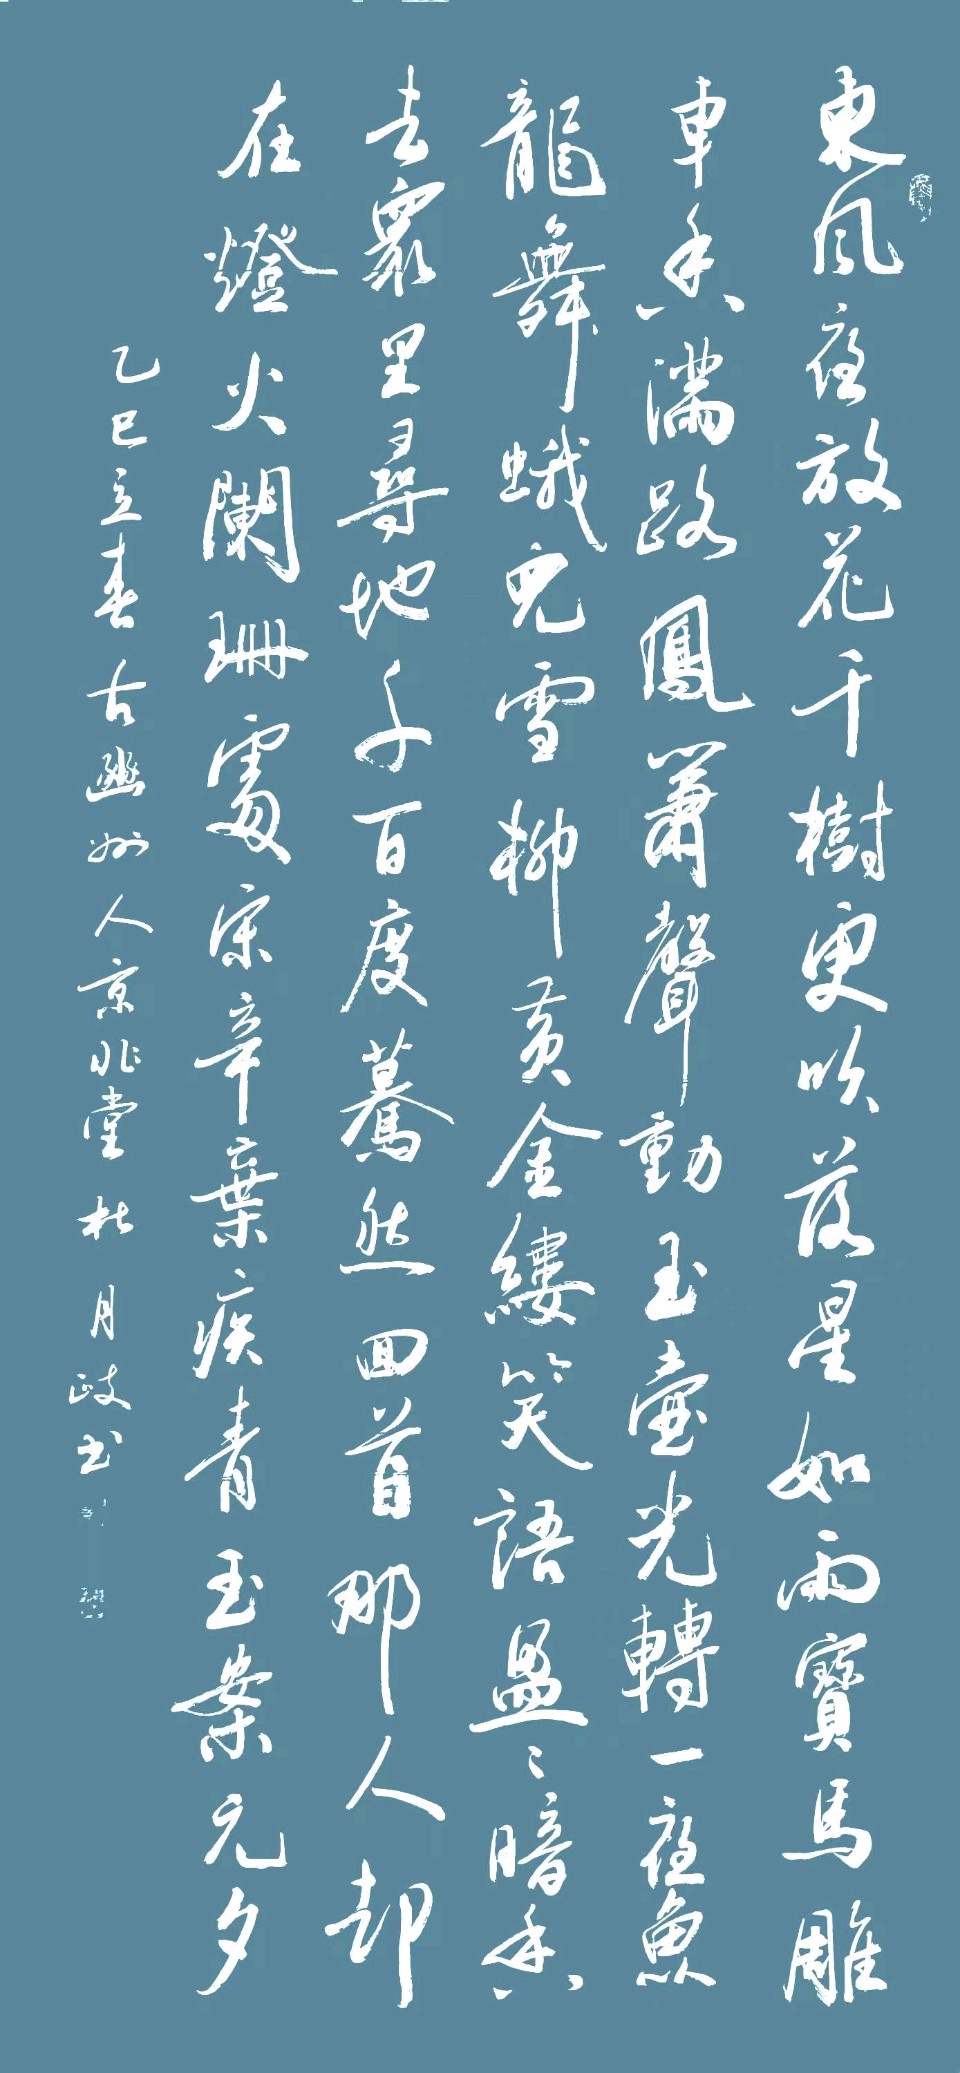 東風夜放花千樹更吹落星如雨寶馬雕
車香滿路鳳簫聲動玉壺光轉一夜魚
龍舞蛾兒雪柳黃金縷笑語盈〻暗香
去衆里尋地千百度驀然回首那人却
在燈火闌珊處宋辛棄疾青玉案元夕
乙巳立春古幽州人京兆堂杜月歧书